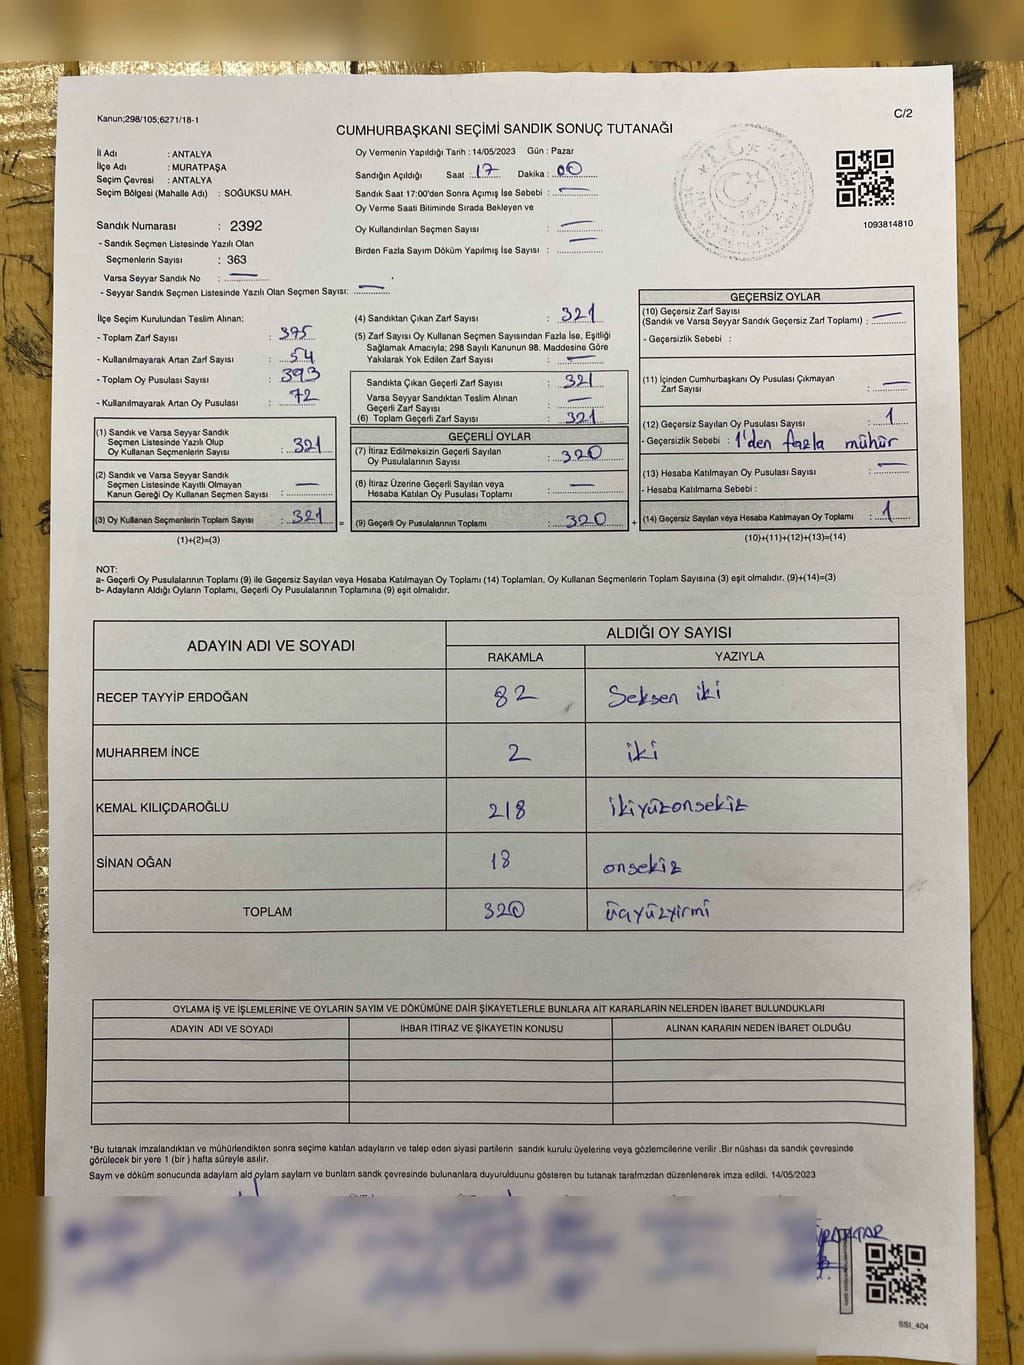 Kanun;298/105;6271/18-1
C/2
CUMHURBAŞKANI SEÇİMİ SANDIK SONUÇ TUTANAĞI
İl Adı : ANTALYA
İlçe Adı : MURATPAŞA
Seçim Çevresi : ANTALYA
Seçim Bölgesi (Mahalle Adı) : SOĞUKSU MAH.
Sandık Numarası : 2392
- Sandık Seçmen Listesinde Yazılı Olan
Seçmenlerin Sayısı : 363
Varsa Seyyar Sandık No :
- Seyyar Sandık Seçmen Listesinde Yazılı Olan Seçmen Sayısı:
Oy Vermenin Yapıldığı Tarih : 14/05/2023 Gün : Pazar
Sandığın Açıldığı Saat : 17 Dakika : 00
Sandık Saat 17:00'den Sonra Açımış İse Sebebi :
Oy Verme Saati Bitiminde Sırada Bekleyen ve
Oy Kullandırılan Seçmen Sayısı :
Birden Fazla Sayım Döküm Yapılmış İse Sayısı :
1093814810
İlçe Seçim Kurulundan Teslim Alınan;
- Toplam Zarf Sayısı : 375
- Kullanılmayarak Artan Zarf Sayısı : 54
- Toplam Oy Pusulası Sayısı : 393
- Kullanılmayarak Artan Oy Pusulası : 72
(1) Sandık ve Varsa Seyyar Sandık
Seçmen Listesinde Yazılı Olup
Oy Kullanan Seçmenlerin Sayısı : 321
(2) Sandık ve Varsa Seyyar Sandık
Seçmen Listesinde Kayıtlı Olmayan
Kanun Gereği Oy Kullanan Seçmen Sayısı :
(3) Oy Kullanan Seçmenlerin Toplam Sayısı : 321
(1)+(2)=(3)
=
(4) Sandıktan Çıkan Zarf Sayısı : 321
(5) Zarf Sayısı Oy Kullanan Seçmen Sayısından Fazla İse, Eşitliği
Sağlamak Amacıyla; 298 Sayılı Kanunun 98. Maddesine Göre
Yakılarak Yok Edilen Zarf Sayısı :
Sandıkta Çıkan Geçerli Zarf Sayısı : 321
Varsa Seyyar Sandıktan Teslim Alınan
Geçerli Zarf Sayısı :
(6) Toplam Geçerli Zarf Sayısı : 321
GEÇERLİ OYLAR
(7) İtiraz Edilmeksizin Geçerli Sayılan
Oy Pusulalarının Sayısı : 320
(8) İtiraz Üzerine Geçerli Sayılan veya
Hesaba Katılan Oy Pusulası Toplamı :
(9) Geçerli Oy Pusulalarının Toplamı : 320
+
GEÇERSİZ OYLAR
(10) Geçersiz Zarf Sayısı
(Sandık ve Varsa Seyyar Sandık Geçersiz Zarf Toplamı) :
- Geçersizlik Sebebi :
(11) İçinden Cumhurbaşkanı Oy Pusulası Çıkmayan
Zarf Sayısı :
(12) Geçersiz Sayılan Oy Pusulası Sayısı : 1
- Geçersizlik Sebebi : 1'den fazla mühür
(13) Hesaba Katılmayan Oy Pusulası Sayısı :
- Hesaba Katılmama Sebebi :
(14) Geçersiz Sayılan veya Hesaba Katılmayan Oy Toplamı : 1
(10)+(11)+(12)+(13)=(14)
NOT:
a- Geçerli Oy Pusulalarının Toplamı (9) ile Geçersiz Sayılan veya Hesaba Katılmayan Oy Toplamı (14) Toplamları, Oy Kullanan Seçmenlerin Toplam Sayısına (3) eşit olmalıdır. (9)+(14)=(3)
b- Adayların Aldığı Oyların Toplamı, Geçerli Oy Pusulalarının Toplamına (9) eşit olmalıdır.
ADAYIN ADI VE SOYADI
ALDIĞI OY SAYISI
RAKAMLA YAZIYLA
RECEP TAYYİP ERDOĞAN 82 Seksen iki
MUHARREM İNCE 2 iki
KEMAL KILIÇDAROĞLU 218 ikiyüzonsekiz
SİNAN OĞAN 18 onsekiz
TOPLAM 320 üçyüzyirmi
OYLAMA İŞ VE İŞLEMLERİNE VE OYLARIN SAYIM VE DÖKÜMÜNE DAİR ŞİKAYETLERLE BUNLARA AİT KARARLARIN NELERDEN İBARET BULUNDUKLARI
ADAYIN ADI VE SOYADI İHBAR İTİRAZ VE ŞİKAYETİN KONUSU ALINAN KARARIN NEDEN İBARET OLDUĞU
*Bu tutanak imzalandıktan ve mühürlendikten sonra seçime katılan adayların ve talep eden siyasi partilerin sandık kurulu üyelerine veya gözlemcilerine verilir .Bir nüshası da sandık çevresinde
görülecek bir yere 1 (bir ) hafta süreyle asılır.
Sayım ve döküm sonucunda adayların ald oyların sayların ve bunların sandk çevresinde bulunanlara duyurulduunu gösteren bu tutanak tarafmzdan düzenlenerek imza edildi. 14/05/2023
SSI_404